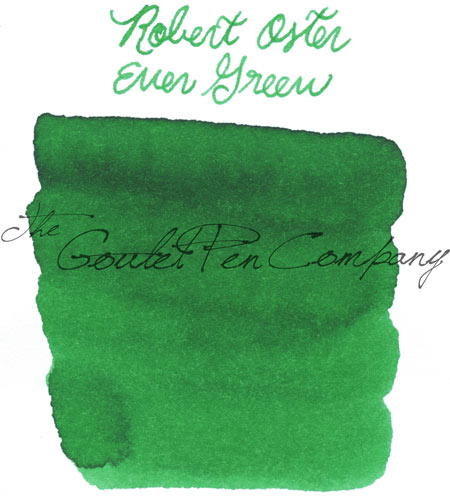 Robert Oster
Ever Green
The Goulet Pen Company